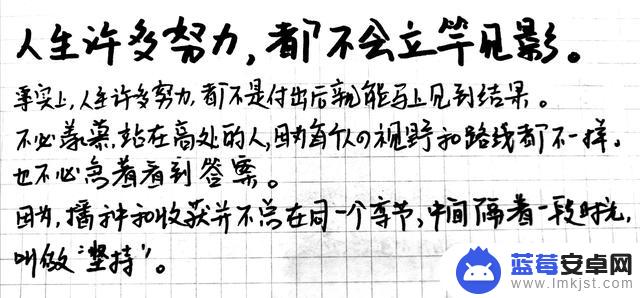 人生许多努力，都不会立竿见影。
事实上，人生许多努力，都不是付出后就能马上见到结果。
不必羡慕，站在高处的人，因为每个人的视野和路线都不一样，
也不必急着看到答案。
因为，播种和收获并不总在同一个季节，中间隔着一段时光，
叫做“坚持”。
蓝莓安卓网
www.lmkjst.com